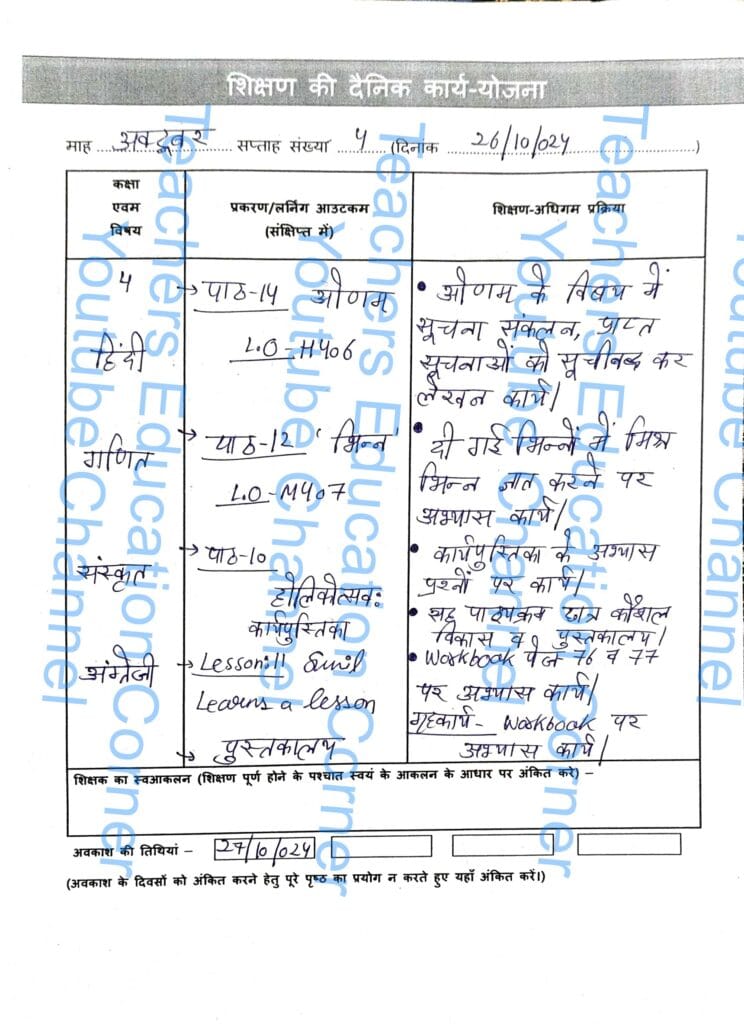 शिक्षण की दैनिक कार्य-योजना
माह अक्टूबर सप्ताह संख्या 4 (दिनांक 26/10/024)
कक्षा
एवम
विषय
प्रकरण/लर्निंग आउटकम
(संक्षिप्त में)
शिक्षण-अधिगम प्रक्रिया
4
हिंदी
→ पाठ-14 ओणम
L.O-H406
• ओणम के विषय में
सूचना संकलन, प्राप्त
सूचनाओं को सूचीबद्ध कर
लेखन कार्य।
गणित
→ पाठ-12 'भिन्न'
L.O-M407
• दी गई भिन्नों में मिश्र
भिन्न ज्ञात करने पर
अभ्यास कार्य।
संस्कृत
→ पाठ-10
होलिकोत्सवः
कार्यपुस्तिका
• कार्यपुस्तिका के अभ्यास
प्रश्नों पर कार्य।
• सह पाठ्यक्रम छात्र कौशल
विकास व पुस्तकालय।
अंग्रेजी
→ Lesson:11 Sunil
Learns a lesson
→ पुस्तकालय
• Workbook पेज 76 व 77
पर अभ्यास कार्य।
गृहकार्य- Workbook पर
अभ्यास कार्य।
शिक्षक का स्वआकलन (शिक्षण पूर्ण होने के पश्चात स्वयं के आकलन के आधार पर अंकित करे) –
अवकाश की तिथियां – 27/10/024
(अवकाश के दिवसों को अंकित करने हेतु पूरे पृष्ठ का प्रयोग न करते हुए यहाँ अंकित करें।)
Teachers Education Corner
Youtube Channel
Teachers Education Corner
Youtube Channel
Teachers Education Corner
Youtube Channel
Youtube Channel